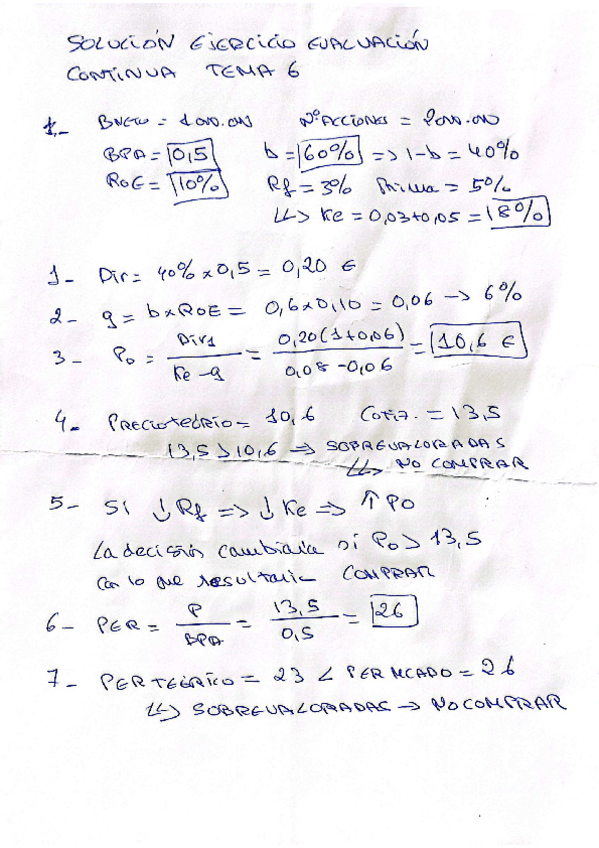 SOLUCIÓN EJERCICIO EVALUACIÓN
CONTINUA TEMA 6
1.- BNETO = 1000.000 Nº ACCIONES = 2000.000
BPA = 0,5 b = 60% => 1-b = 40%
ROE = 10% Rf = 3% Prima = 5%
↳> Ke = 0,03+0,05 = 8%
1- Div = 40% x 0,5 = 0,20 €
2- g = b x ROE = 0,6 x 0,10 = 0,06 -> 6%
3- P0 = Div1 / Ke - g = 0,20(1+0,06) / 0,08 - 0,06 = 10,6 €
4- PRECIO TEÓRICO = 10,6 Cotiz. = 13,5
13,5 > 10,6 => SOBREVALORADAS
↳> NO COMPRAR
5- Si ↓ Rf => ↓ Ke => ↑ P0
La decisión cambiaría si P0 > 13,5
con lo que resultaría COMPRAR
6- PER = P / BPA = 13,5 / 0,5 = 26
7- PER TEÓRICO = 23 < PER MCADO = 26
↳> SOBREVALORADAS -> NO COMPRAR